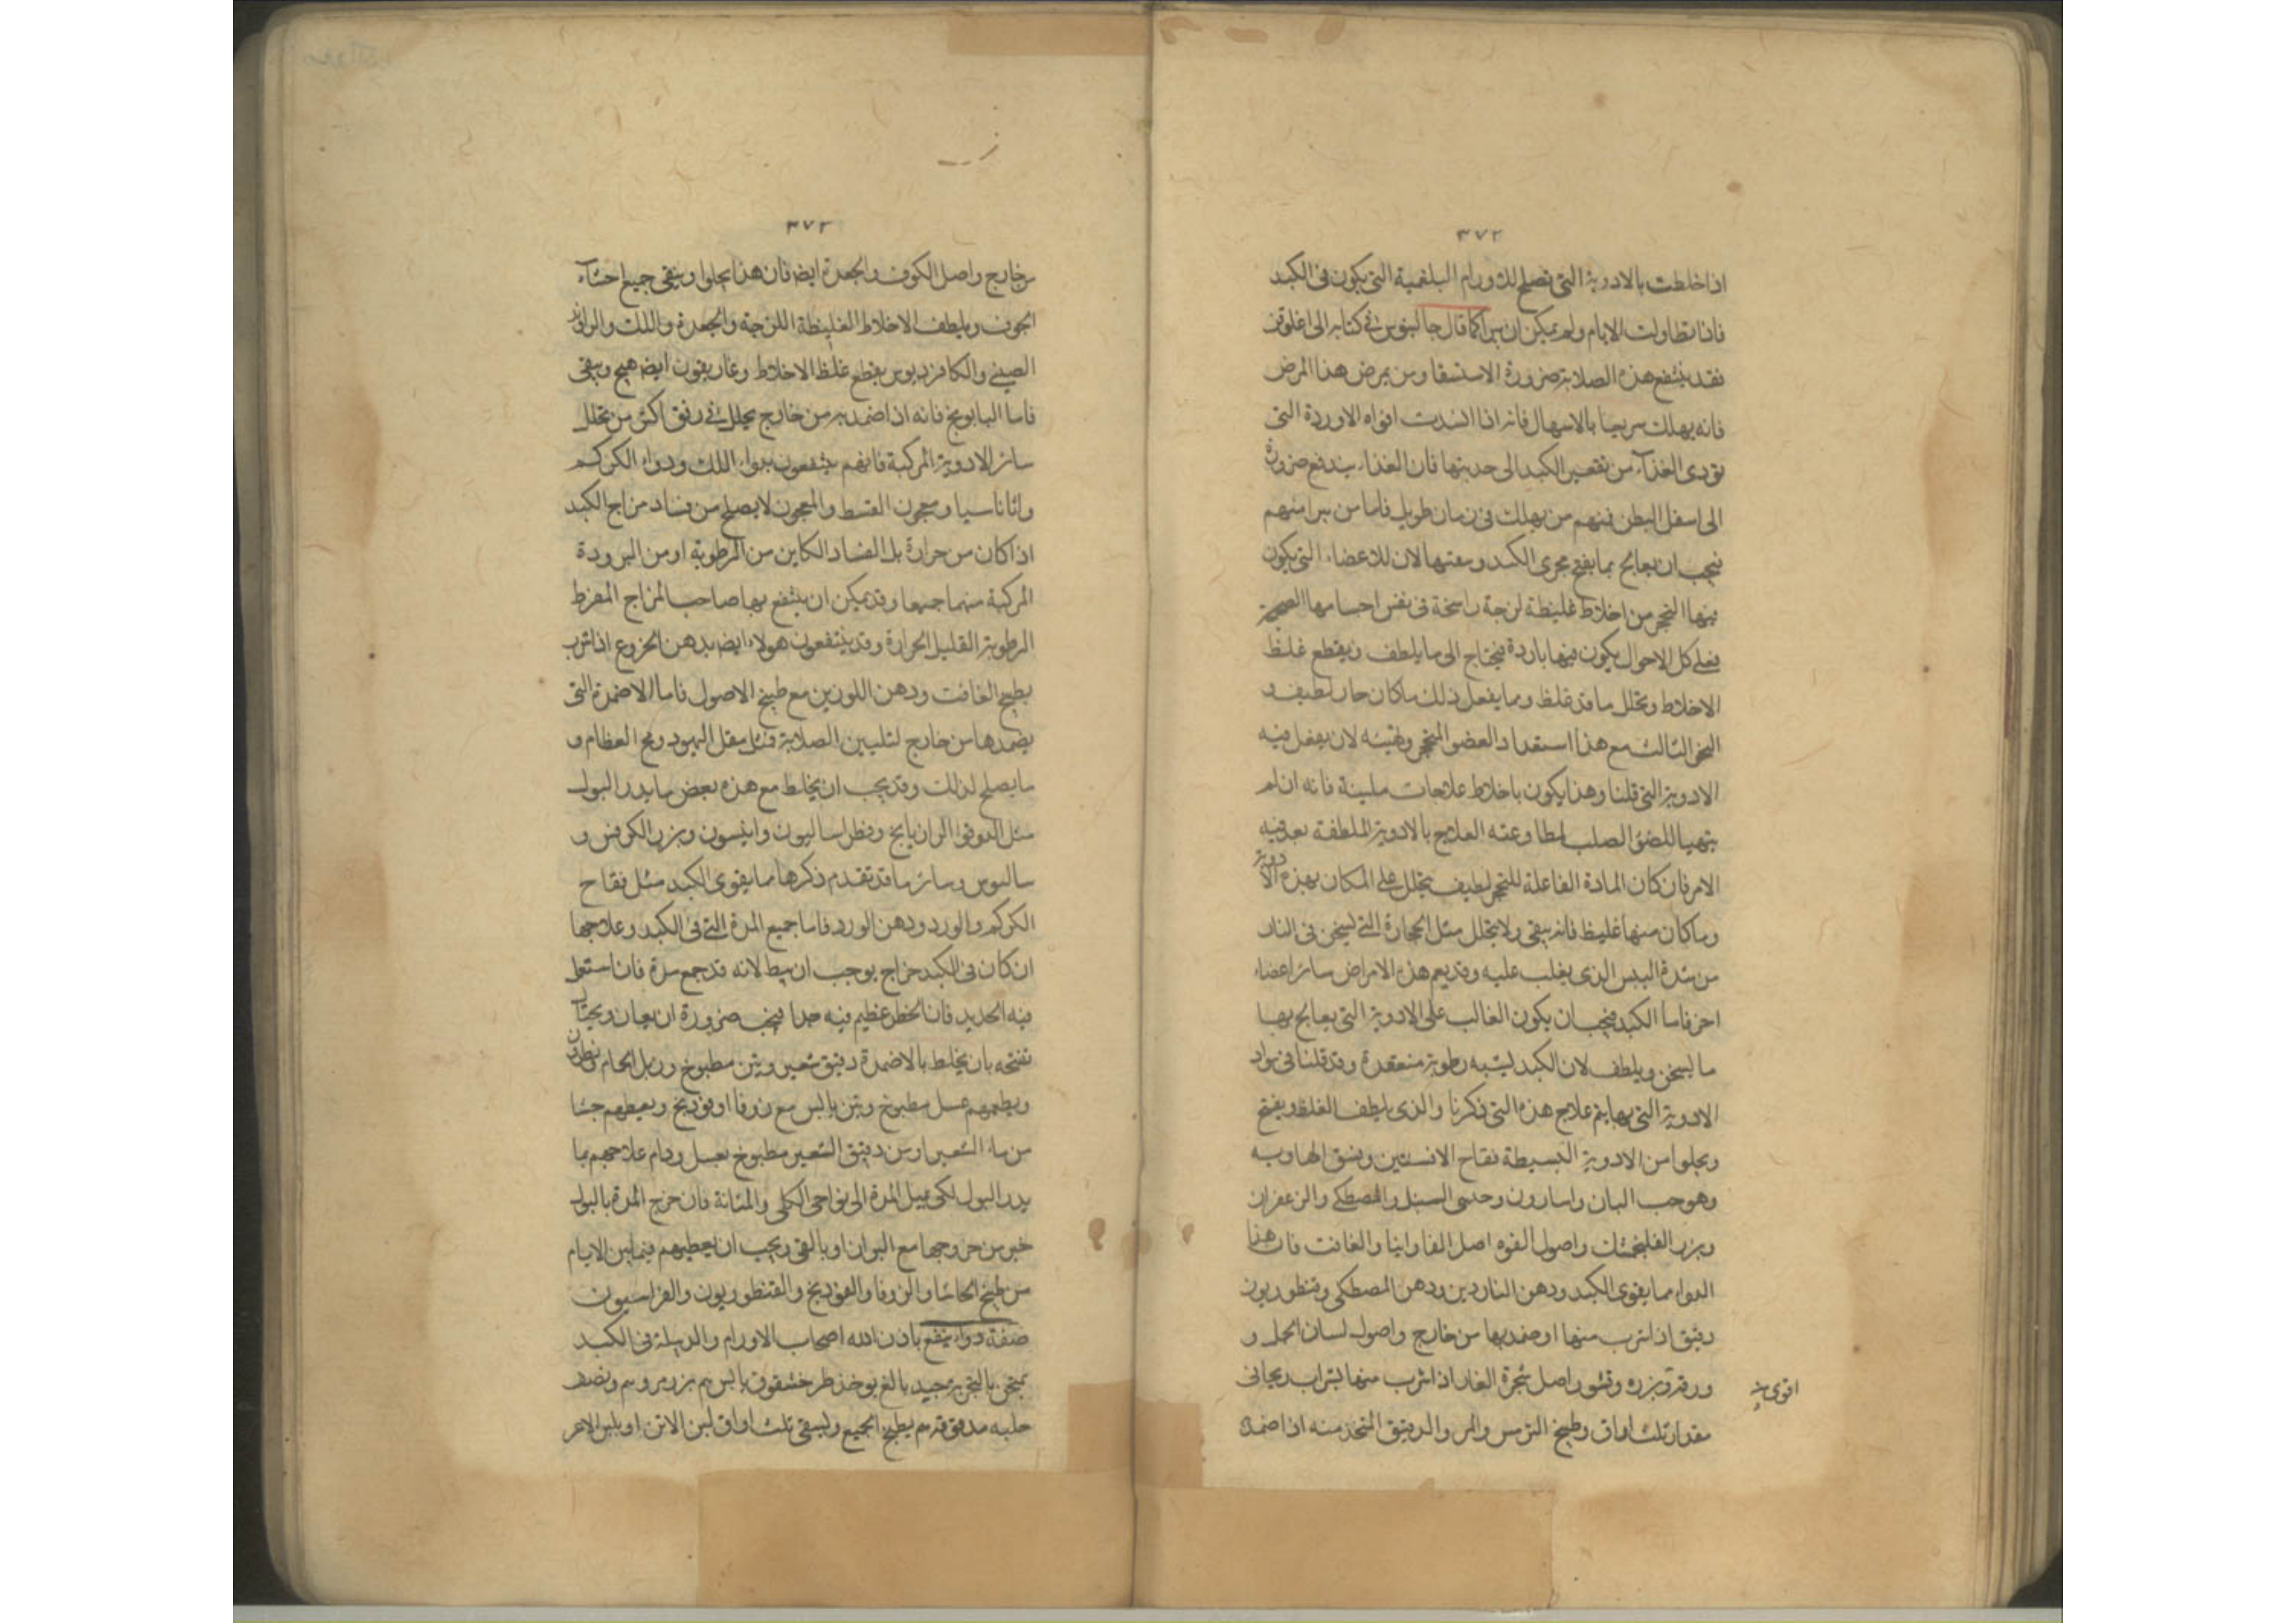 ٣٧٢
اذا خلطت بالادوية التى تصلح للاورام البلغمية التى يكون فى الكبد
فاذا تطاولت الايام ولم يمكن ان يبرا كما قال جالينوس فى كتابه الى اغلوقن
فقد ينتفع هذه الصلابة ضرورة الاستسقا ومن يمرض هذا المرض
فانه يهلك سريعا بالاسهال فانه اذا انسدت افواه الاوردة التى
تودى الغذاء من تقعير الكبد الى حدبتها فان الغذاء يندفع ضرورة
الى اسفل البطن فمنهم من يهلك فى زمان طويل فاما من يبرا منهم
فيجب ان يعالج بما يفتح مجرى الكبد وسعتها لان للاعضاء التى يكون
فيها التحجر من اخلاط غليظة لزجة راسخة فى نفس اجسامها الصحيحة
فعلى كل الاحوال يكون فيها باردة فيحتاج الى ما يلطف ويقطع غلظ
الاخلاط ويحلل ما قد غلظ ومما يفعل ذلك ما كان حار لطيف و
النحو الثالث مع هذا استعداد العضو المتحجر وتهيئه لان يفعل فيه
الادوية التى قلنا وهذا يكون باخلاط علاجات ملينة فانه ان لم
يتهيا للعضو الصلب لمطاوعته العلاج بالادوية الملطفة بعد فيه
الامر فان كان المادة الفاعلة للتحجر لطيف يتحلل على المكان بهذه الادوية
وما كان منها غليظ فانه يبقى ولا يتحلل مثل الحجارة التى تسخن فى النار
من شدة اليبس الذى يغلب عليه وقد يعم هذه الامراض سائر اعضاء
اخر فاما الكبد فيجب ان يكون الغالب على الادوية التى يعالج بها
ما يسخن ويلطف لان الكبد ليشبه رطوبة منعقدة وقد قلنا فى مواد
الادوية التى بها يتم علاج هذه التى ذكرنا والذى يلطف الغلظ ويفتح
ويجلوا من الادوية البسيطة نقاح الافسنتين وفستق الهاوبه
وهو حب البان واسارون وحشى السنبل والمصطكى والزعفران
وبزر الفلنجمشك واصول الفوه اصل الفاوانيا والغافت فان هذا
الدواء مما يقوى الكبد ودهن الناردين ودهن المصطكى وقنطوريون
رقيق اذا شرب منها او ضمد بها من خارج واصول لسان الحمل و
ورقه وبزره وقشور اصل شجرة الغار اذا شرب منها بشراب ريحانى
اقوى
مقدار ثلث اواق وطبيخ الترمس والمر والدقيق المتخذ منه اذا ضمد
٣٧٣
من خارج واصل الكوف والجعدة ايضه فان هذا يجلوا وينقى جميع احشاء
الجوف ويلطف الاخلاط الغليظة اللزجة والجعدة واللك والراوند
الصينى والكافزديوس يقطع غلظ الاخلاط وغاريقون ايضه هيج وينقى
فاما البابونج فانه اذا ضمد به من خارج يحلل فى رفق اكثر من تحلل
سائر الادوية المركبة فانهم ينتفعون بدواء اللك ودواء الكركم
واثاناسيا ومعجون القسط والمعجون لا يصلح من فساد مزاج الكبد
اذا كان من حرارة بل الفساد الكاين من الرطوبة او من البرودة
المركبة منهما جميعا وقد يمكن ان ينتفع بها صاحب المزاج المفرط
الرطوبة القليل الحرارة وقد ينتفعون هولاء ايضه بدهن الخروع اذا شرب
بطبيخ الغافت ودهن اللوزين مع طبيخ الاصول فاما الاضمدة التى
يضمدها من خارج لتليين الصلابة فمثل مقل اليهود ومخ العظام و
ما يصلح لذلك وقد يجب ان يخلط مع هذه بعض ما يدر البول
مثل الدوقوا الرازيانج وفطراساليون وانيسون وبزر الكرفس و
ساليوس وسائر ما قد تقدم ذكرها مما يقوى الكبد مثل نقاح
الكركم والورد ودهن الورد فاما جميع المدة التى فى الكبد وعلاجها
ان كان فى الكبد خراج يوجب ان يبط لانه قد جمع مدة فان استعمل
فيه الحديد فان الخطر عظيم فيه جدا فيجب ضرورة ان يعان ويحتال
تفتحه بان يخلط بالاضمدة دقيق شعير وتين مطبوخ وزبل الحمام ونطرون
ويطعمهم عسل مطبوخ وتين يابس مع زوفا او فوذنج ويعطيهم حسا
من ماء الشعير او من دقيق الشعير مطبوخ بعسل ودام علاجهم بما
يدر البول لكى يميل المدة الى نواحى الكلى والمثانة فان خرج المدة بالبول
خير من خروجها مع البراز او بالقى ويجب ان يعطيهم فيما بين الايام
من طبيخ الحاشا والزوفا والفوذنج والقنطوريون والفراسيون
صفة دواء ينفع باذن الله اصحاب الاورام والدبيلة فى الكبد
بالتجربة جيد بالغ يوخذ طرخشقوق يابس ٣م بزر مرو ٣م ونصف
حلبه مدقوقة ٣م يطبخ الجميع ويسقى ثلث اواق لبن الاتن او بلبن الاعز